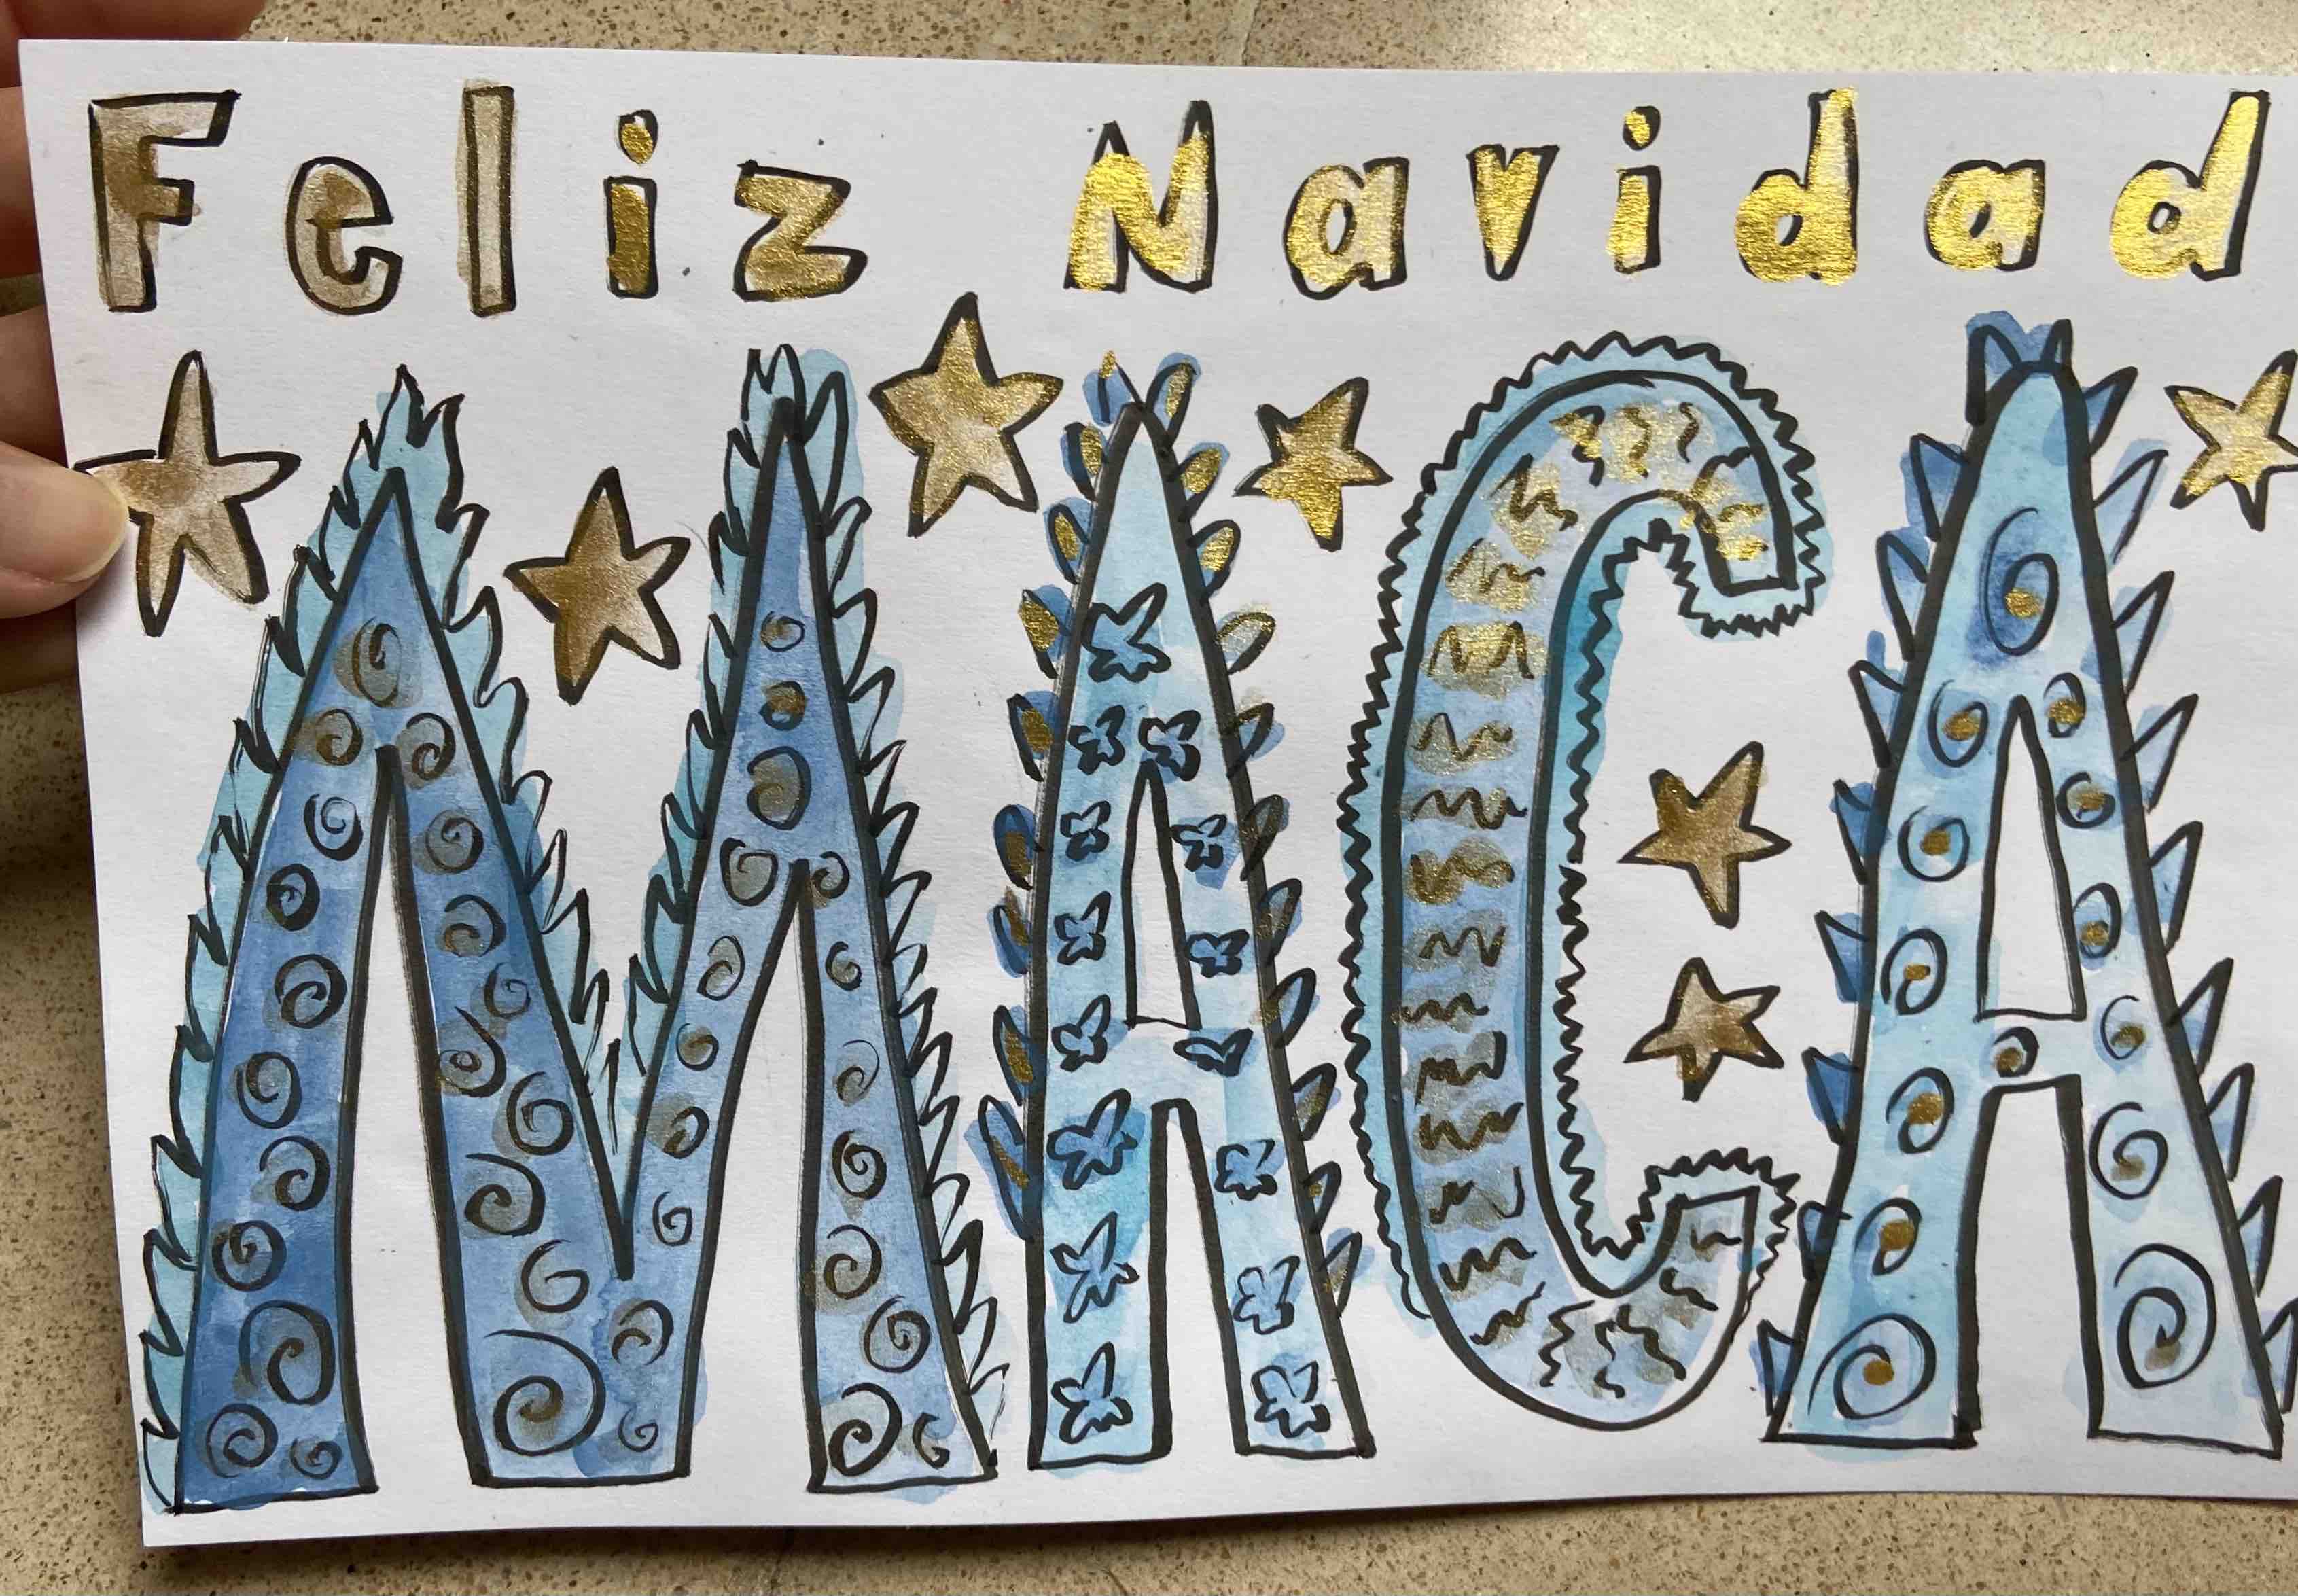 Feliz Navidad
MACA